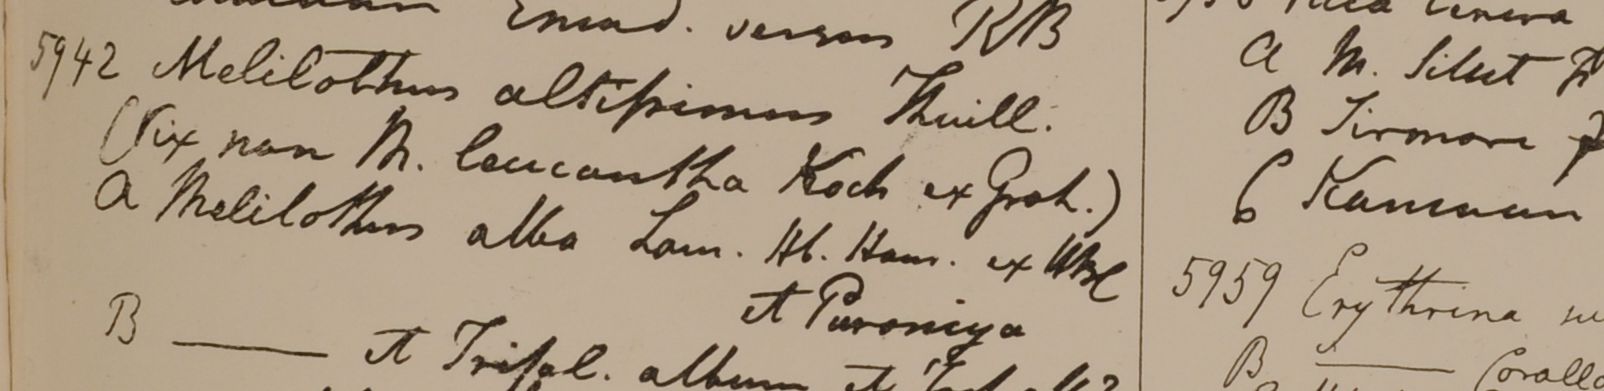 Emend. versus RB
5942 Melilothus altissimus Thuill.
(Vix non M. leucantha Koch ex Grah.)
a Melilothus alba Lam. Hb. Ham. ex
et Puroniya
B —— et Trifol. album et
a M. Silhet
B Sirmore
6 Kamaun
5959 Erythrina
B —— Corallo